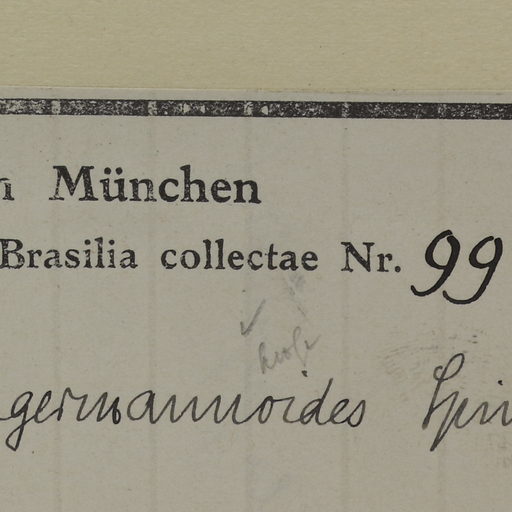 n München
Brasilia collectae Nr. 99
germannoides Spin